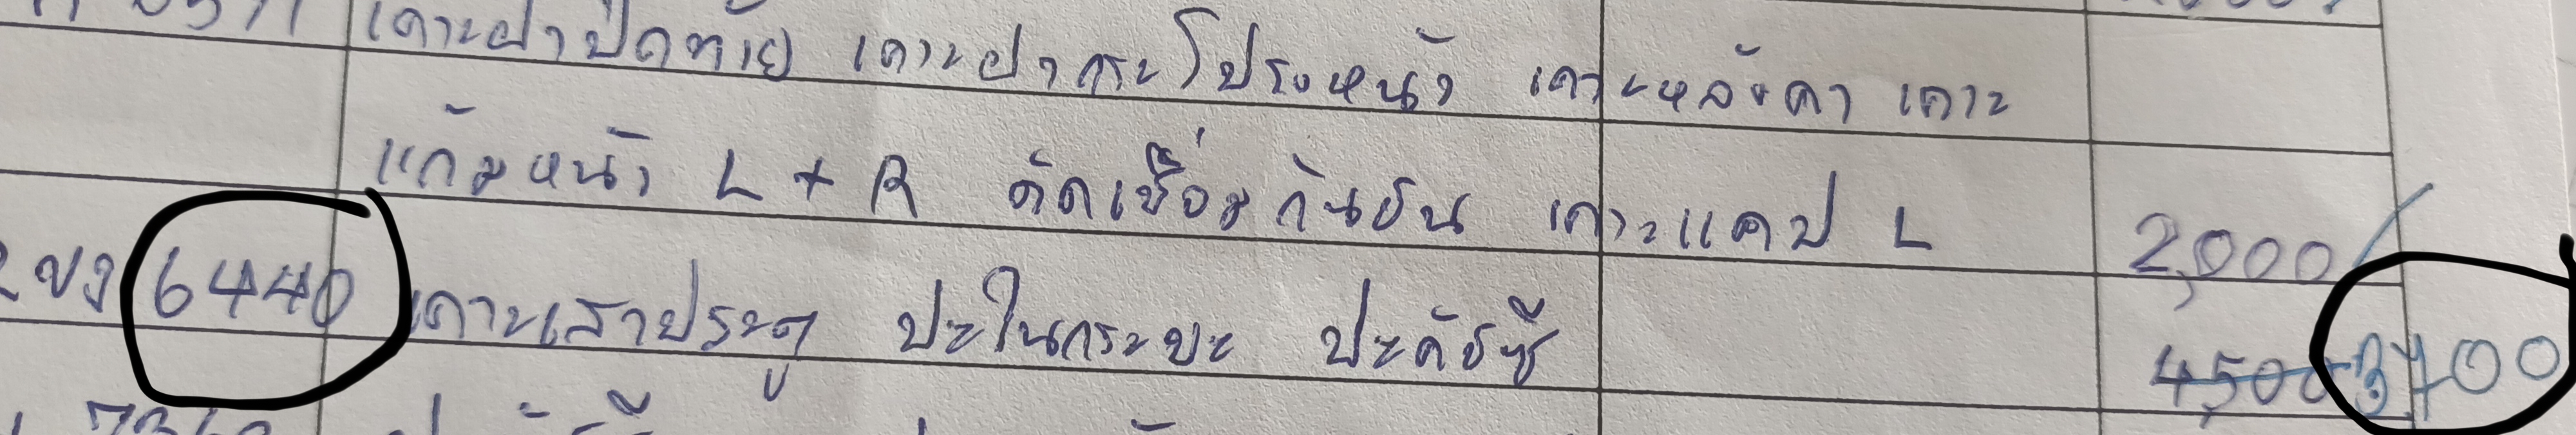 เคาะฝาปิดท้าย เคาะฝากระโปรงหน้า เคาะหลังคา เคาะ
แก้มหน้า L + R ตัดเชื่อมกันชน เคาะแคป L 2,000/
ขง 6440 เคาะเสาประตู ปะในกระบะ ปะคัชซี 4,500 3,400